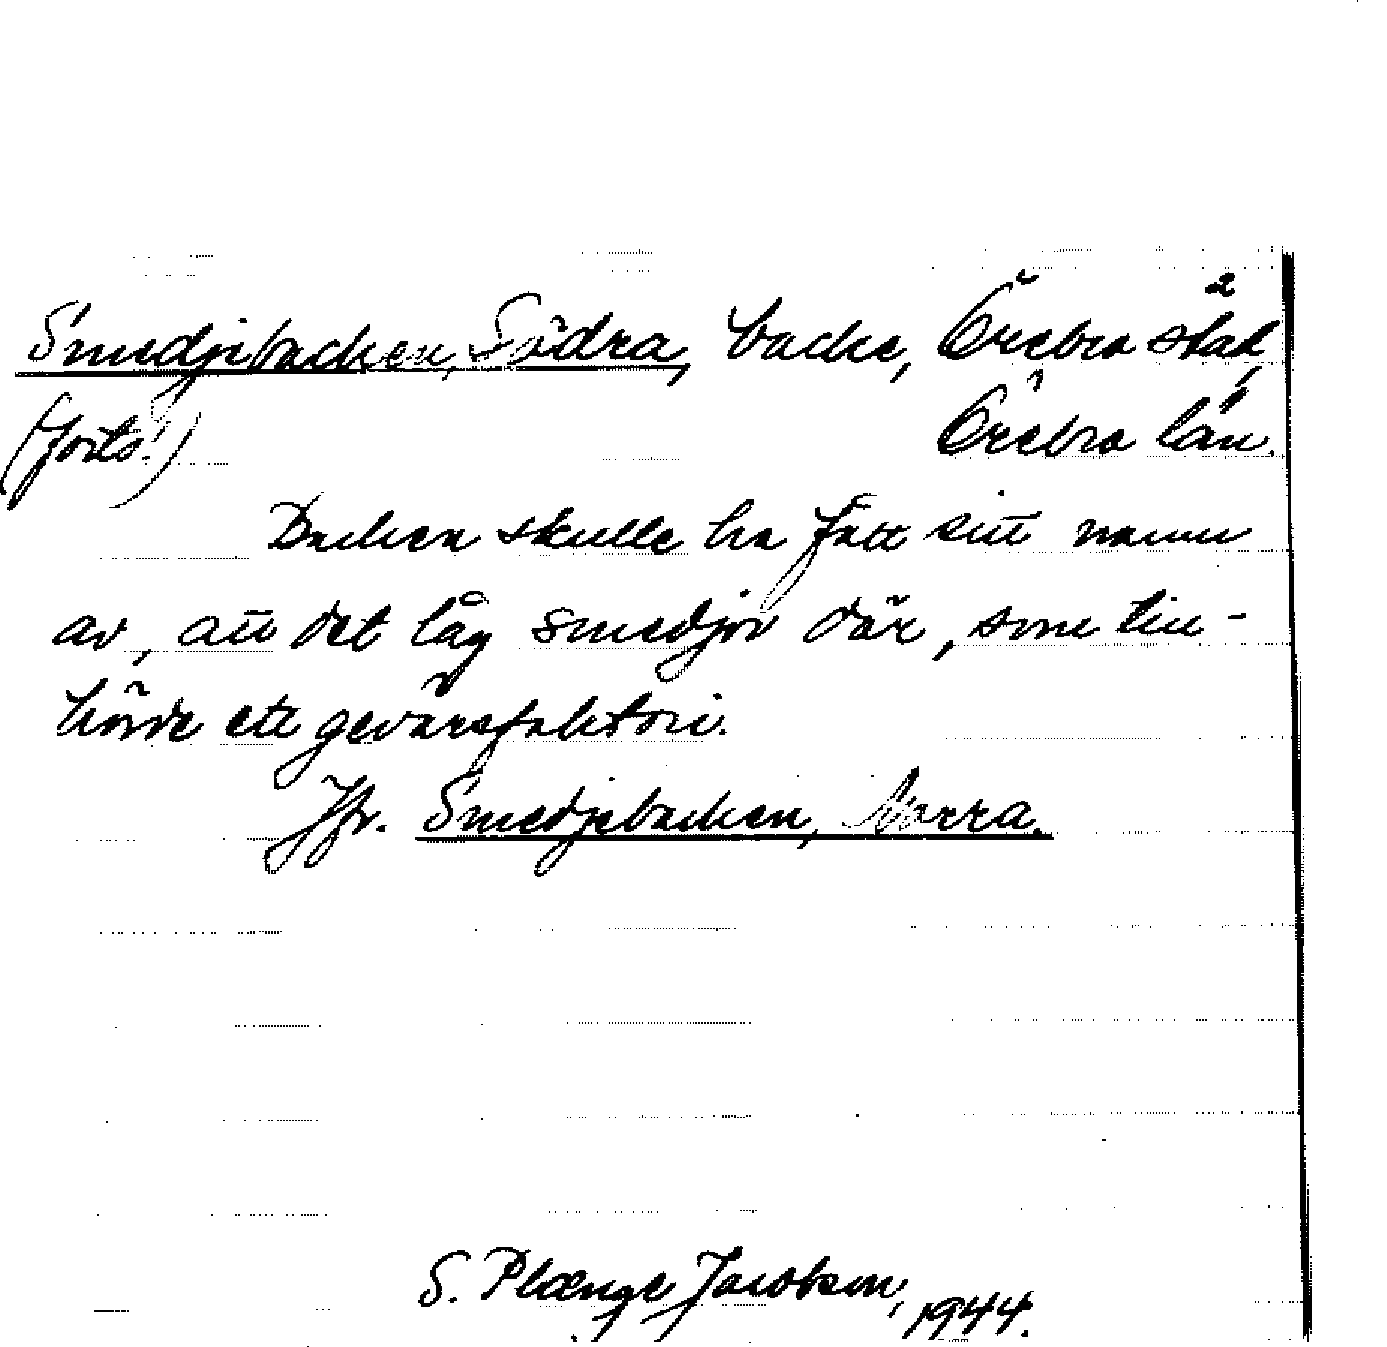 2
Smedjebacken, Södra, backe, Örebro stad,
(forts.) Örebro län.
Backen skulle ha fått sitt namn
av, att det låg smedjor där, som till-
hörde ett gevärsfaktori.
Jfr. Smedjebacken, Norra.
S. Plænge Jacobson, 1944.